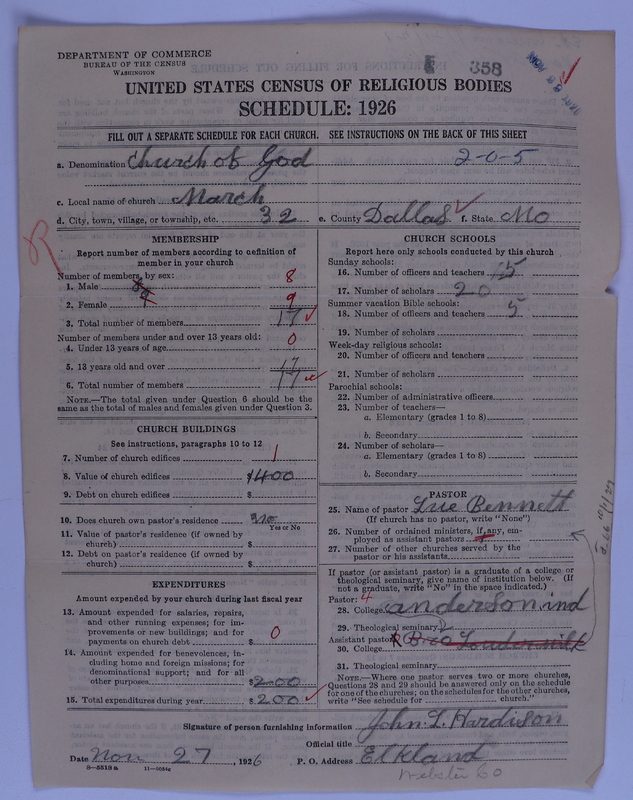 DEPARTMENT OF COMMERCE
BUREAU OF THE CENSUS
WASHINGTON
358
UNITED STATES CENSUS OF RELIGIOUS BODIES
SCHEDULE: 1926
FILL OUT A SEPARATE SCHEDULE FOR EACH CHURCH. SEE INSTRUCTIONS ON THE BACK OF THIS SHEET
a. Denomination Church of God 2-0-5
c. Local name of church March
d. City, town, village, or township, etc. 32 e. County Dallas f. State Mo
R
MEMBERSHIP
Report number of members according to definition of
member in your church
Number of members, by sex:
1. Male 8
2. Female 9
3. Total number of members 17
Number of members under and over 13 years old:
4. Under 13 years of age 0
5. 13 years old and over 17
6. Total number of members 17
NOTE.—The total given under Question 6 should be the
same as the total of males and females given under Question 3.
CHURCH BUILDINGS
See instructions, paragraphs 10 to 12
7. Number of church edifices 1
8. Value of church edifices $400
9. Debt on church edifices $
10. Does church own pastor's residence no
Yes or No
11. Value of pastor's residence (if owned by
church) $
12. Debt on pastor's residence (if owned by
church) $
EXPENDITURES
Amount expended by your church during last fiscal year
13. Amount expended for salaries, repairs,
and other running expenses; for im-
provements or new buildings; and for
payments on church debt $ 0
14. Amount expended for benevolences, in-
cluding home and foreign missions; for
denominational support; and for all
other purposes $200
15. Total expenditures during year $200
CHURCH SCHOOLS
Report here only schools conducted by this church
Sunday schools:
16. Number of officers and teachers 5
17. Number of scholars 20
Summer vacation Bible schools:
18. Number of officers and teachers 5
19. Number of scholars
Week-day religious schools:
20. Number of officers and teachers
21. Number of scholars
Parochial schools:
22. Number of administrative officers
23. Number of teachers—
a. Elementary (grades 1 to 8)
b. Secondary
24. Number of scholars—
a. Elementary (grades 1 to 8)
b. Secondary
PASTOR
25. Name of pastor Lue Bennett
(If church has no pastor, write "None")
26. Number of ordained ministers, if any, em-
ployed as assistant pastors
27. Number of other churches served by the
pastor or his assistants
If pastor (or assistant pastor) is a graduate of a college or
theological seminary, give name of institution below. (If
not a graduate, write "No" in the space indicated.)
Pastor: 4
28. College anderson, ind
29. Theological seminary
Assistant pastor R Bro Loudermilk
30. College
31. Theological seminary
NOTE.—Where one pastor serves two or more churches,
Questions 28 and 29 should be answered only on the schedule
for one of the churches; on the schedules for the other churches,
write "See schedule for church."
Signature of person furnishing information John L. Hardison
Official title
Date Nov 27, 1926 P. O. Address Elkland
8—5518 a 11—9034a
Webster Co